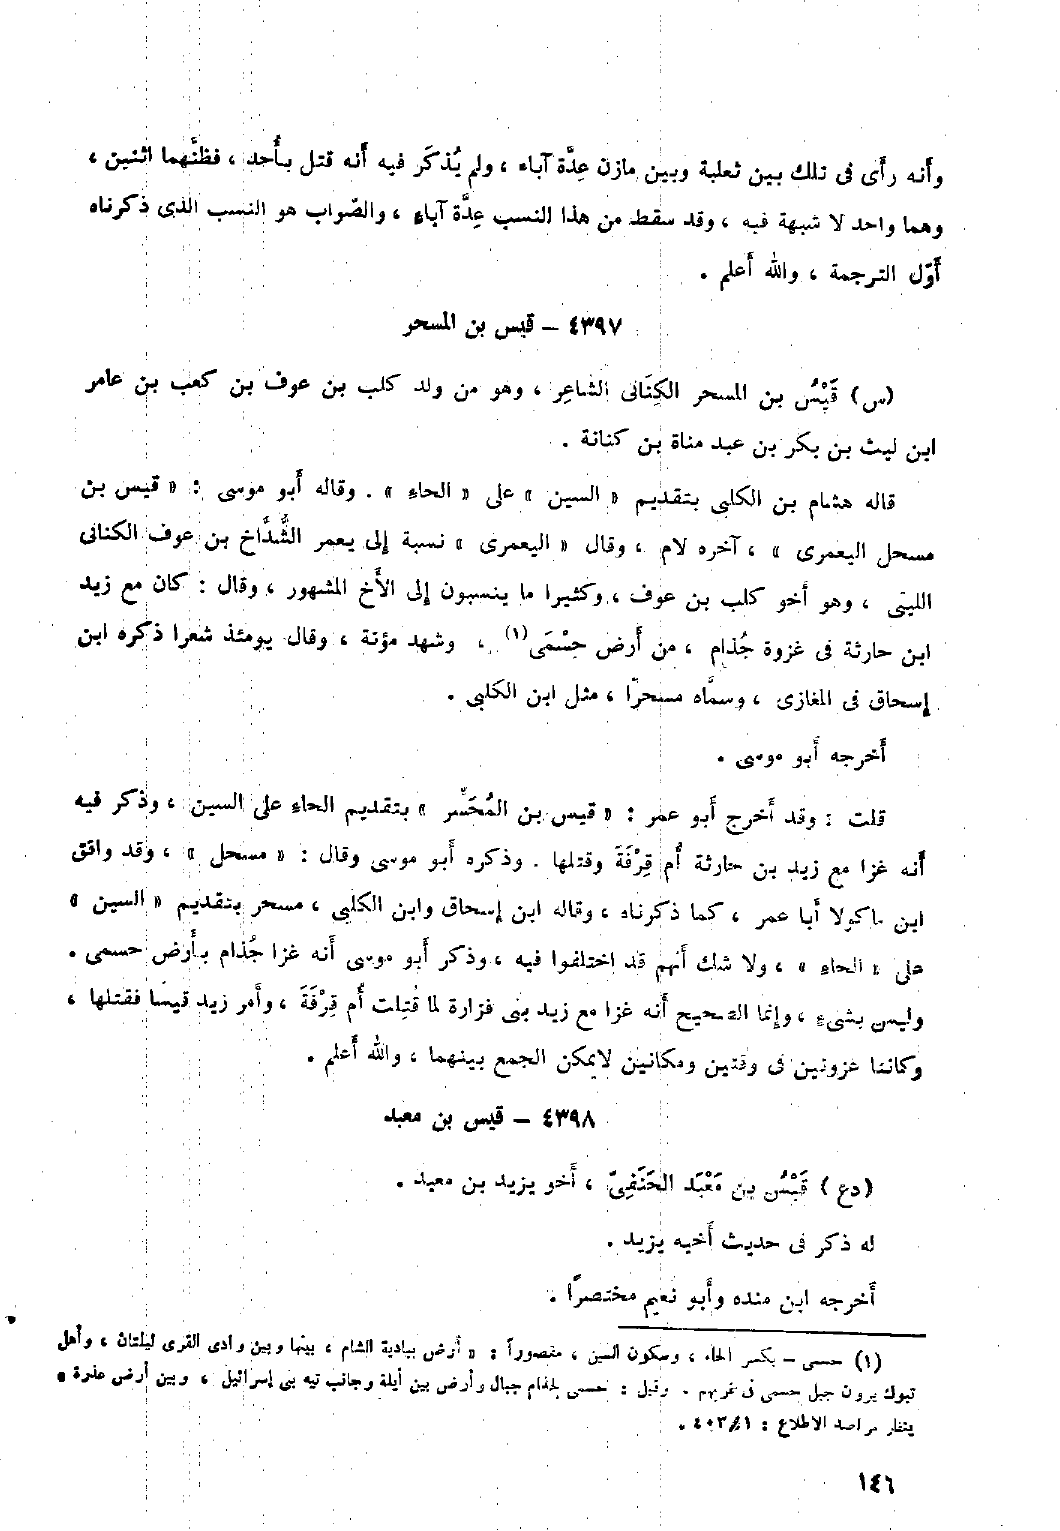 وأنه رأى فى تلك بين ثعلبة وبين مازن عِدَّة آباء ، ولم يُذكَر فيه أنه قتل بأُحد ، فظنَّهما اثنين ،
وهما واحد لا شبهة فيه ، وقد سقط من هذا النسب عِدَّة آباءٍ ، والصّواب هو النسب الذى ذكرناه
أوّل الترجمة ، والله أعلم .
٤٣٩٧ – قيس بن المسحر
(س) قَيْسُ بن المسحر الكِنَانى الشاعِر ، وهو من ولد كلب بن عوف بن كعب بن عامر
ابن ليث بن بكر بن عبد مناة بن كنانة .
قاله هشام بن الكلبى بتقديم « السين » على « الحاء » . وقاله أبو موسى : « قيس بن
مسحل اليعمرى » ، آخره لام ، وقال « اليعمرى » نسبة إلى يعمر الشُّدَّاخ بن عوف الكنانى
الليثى ، وهو أخو كلب بن عوف ، وكثيرا ما ينسبون إلى الأخ المشهور ، وقال : كان مع زيد
ابن حارثة فى غزوة جُذام ، من أرض حِسْمَى (١) ، وشهد مؤتة ، وقال يومئذ شعرا ذكره ابن
إسحاق فى المغازى ، وسمَّاه مسحرًّا ، مثل ابن الكلبى .
أخرجه أبو موسى .
قلت : وقد أخرج أبو عمر : « قيس بن المُحَسِّر » بتقديم الحاء على السين ، وذكر فيه
أنه غزا مع زيد بن حارثة أُم قِرْفَةَ وقتلها . وذكره أبو موسى وقال : « مسحل » ، وقد وافق
ابن ماكولا أبا عمر ، كما ذكرناه ، وقاله ابن إسحاق وابن الكلبى ، مسحر بتقديم « السين »
على « الحاءِ » ، ولا شك أنهم قد اختلفوا فيه ، وذكر أبو موسى أنه غزا جُذام بأرض حسمى .
وليس بشىءٍ ، وإنما الصحيح أنه غزا مع زيد بنى فزارة لما قُتِلت أُم قِرْفَةَ ، وأمر زيد قيسًا فقتلها ،
وكانتا غزوتين فى وقتين ومكانين لايمكن الجمع بينهما ، والله أعلم .
٤٣٩٨ – قيس بن معبد
(دع) قَيْسُ بن مَعْبَد الحَنَفِىّ ، أخو يزيد بن معبد .
له ذكر فى حديث أخيه يزيد .
أخرجه ابن منده وأبو نعيم مختصرًا .
(١) حسمى – بكسر الحاء ، وسكون السين ، مقصوراً : « أرض ببادية الشام ، بينها وبين وادى القرى ليلتان ، وأهل
تبوك يرون جبل حسمى فى غربهم . وقيل : حسمى لجذام جبال وأرض بين أيلة وجانب تيه بنى إسرائيل ، وبين أرض عذرة »
ينظر مراصد الاطلاع : ٤٠٣/١ .
١٤٦